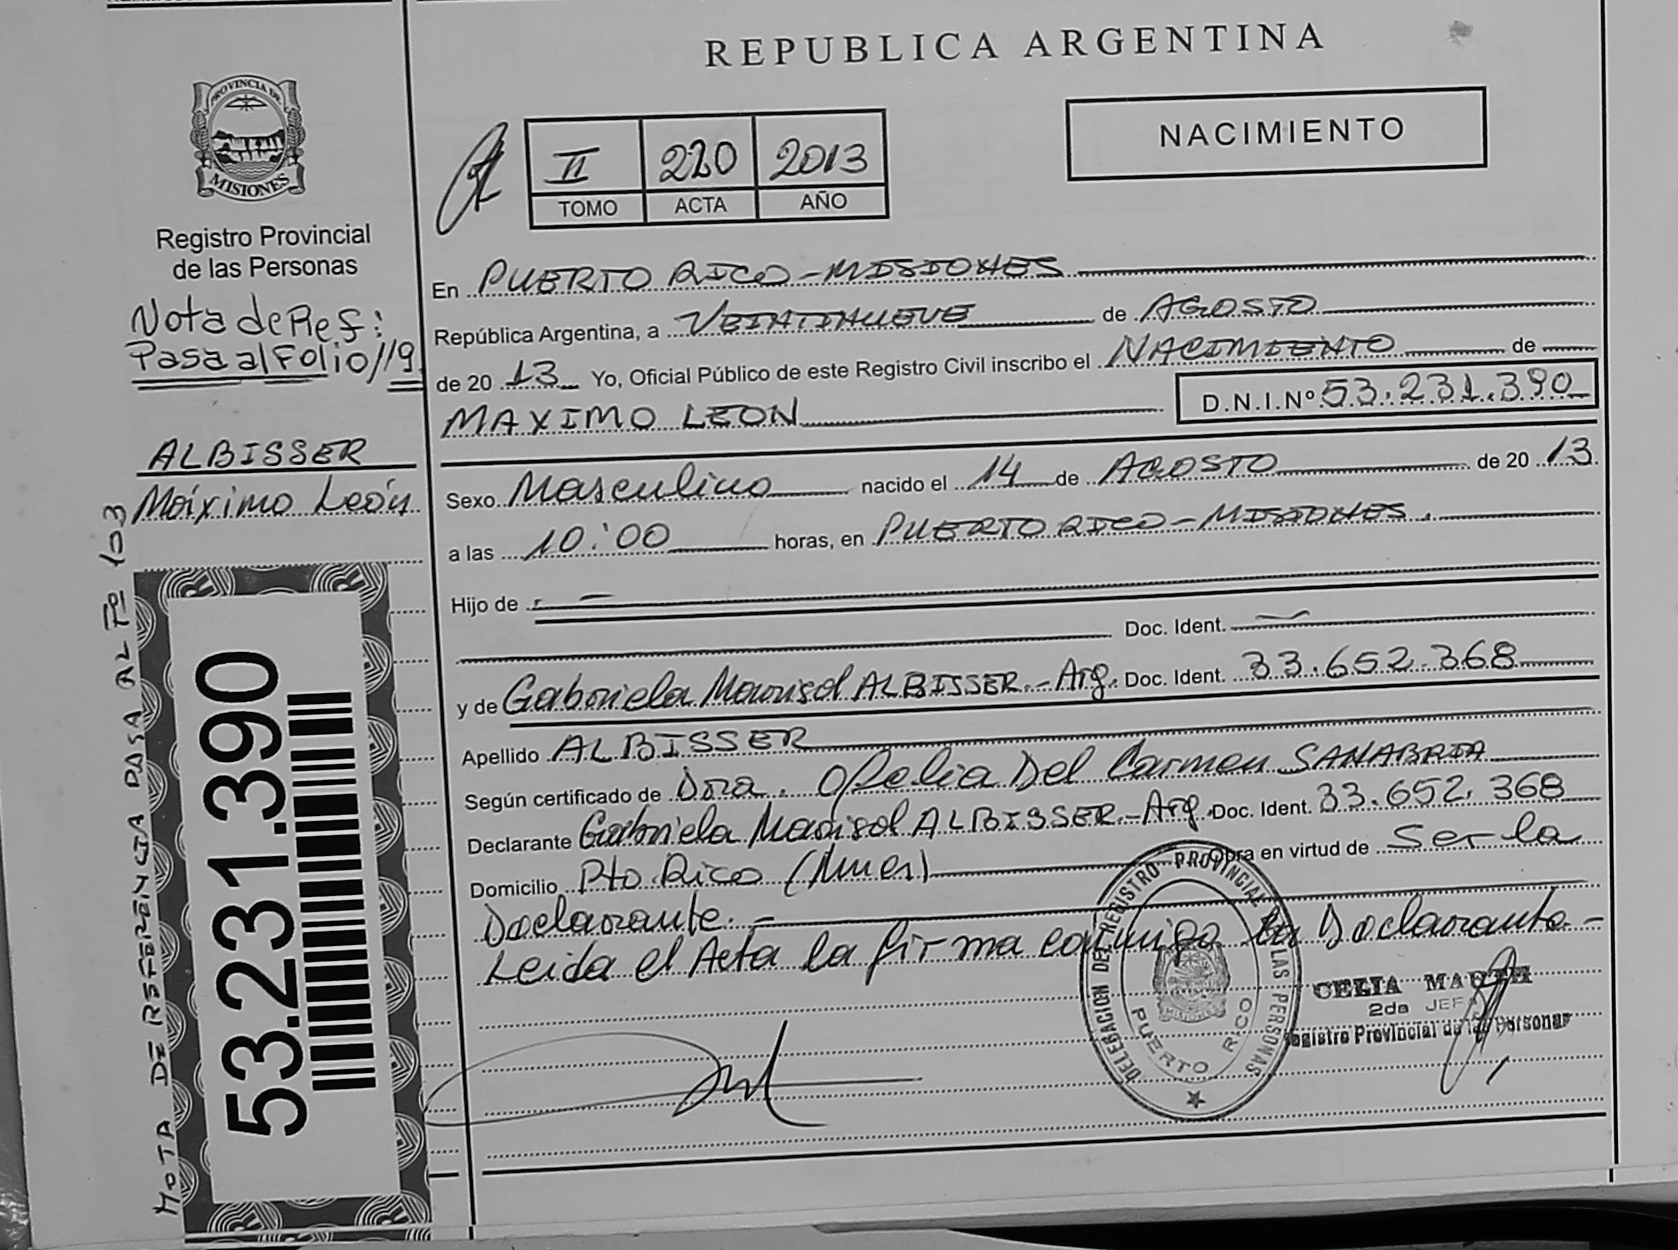 REPUBLICA ARGENTINA
PROVINCIA DE
MISIONES
Registro Provincial
de las Personas
Nota de Ref:
Pasa al Folio 119
ALBISSER
Máximo León
NOTA DE REFERENCIA PASA AL Fº 103
53.231.390
II 220 2013
TOMO ACTA AÑO
NACIMIENTO
En PUERTO RICO - MISIONES
República Argentina, a VEINTINUEVE de AGOSTO
de 20 13 Yo, Oficial Público de este Registro Civil inscribo el NACIMIENTO de
MAXIMO LEON D.N.I.Nº 53.231.390
Sexo Masculino nacido el 14 de AGOSTO de 20 13
a las 10:00 horas, en PUERTO RICO - MISIONES.
Hijo de -
Doc. Ident. -
y de Gabriela Marisol ALBISSER.- Arg. Doc. Ident. 33.652.368
Apellido ALBISSER
Según certificado de Dra. Ofelia Del Carmen SANABRIA
Declarante Gabriela Marisol ALBISSER.- Arg. Doc. Ident. 33.652.368
Domicilio Pto. Rico (Mnes) Obra en virtud de ser la
Declarante.-
Leida el Acta la firma conmigo la Declarante-
DELEGACION DEL REGISTRO PROVINCIAL DE LAS PERSONAS
MISIONES
PUERTO RICO
CELIA
2da JEFA
Registro Provincial de las Personas